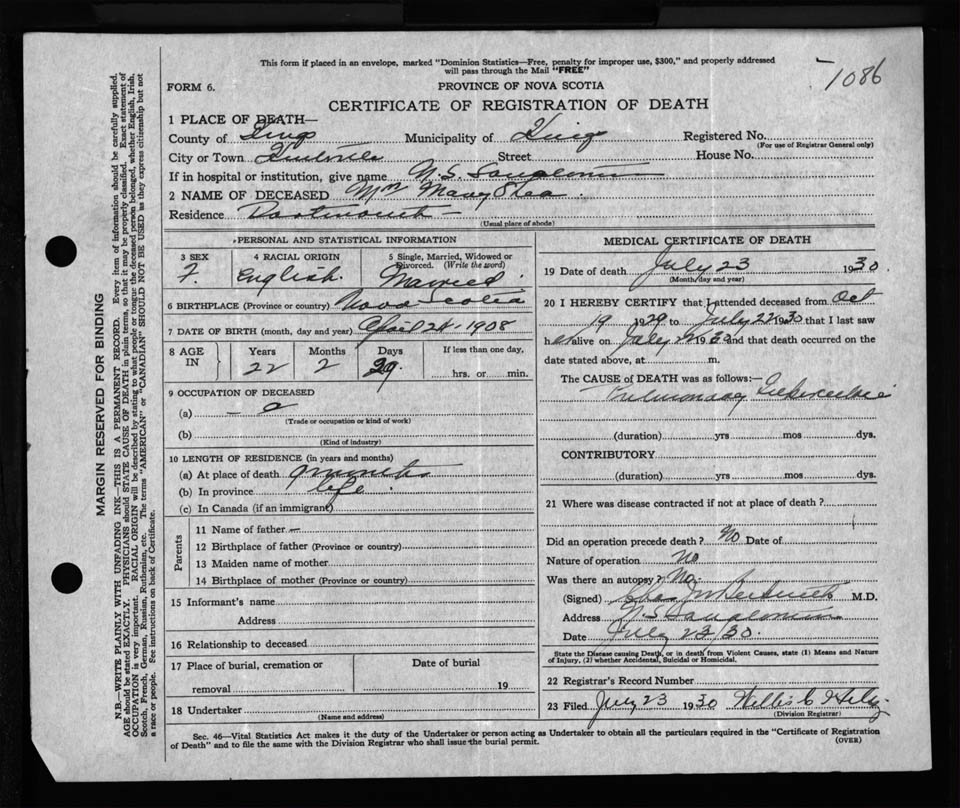 This form if placed in an envelope, marked "Dominion Statistics—Free, penalty for improper use, $300," and properly addressed
will pass through the Mail "FREE"
1086
FORM 6.
PROVINCE OF NOVA SCOTIA
CERTIFICATE OF REGISTRATION OF DEATH
1 PLACE OF DEATH—
County of Kings Municipality of Kings Registered No.
(For use of Registrar General only)
City or Town Kentville Street House No.
If in hospital or institution, give name N.S. Sanatorium
2 NAME OF DECEASED Mrs Mary
Residence Dartmouth —
(Usual place of abode)
PERSONAL AND STATISTICAL INFORMATION
3 SEX
F.
4 RACIAL ORIGIN
English.
5 Single, Married, Widowed or
Divorced. (Write the word)
Married
6 BIRTHPLACE (Province or country) Nova Scotia
7 DATE OF BIRTH (month, day and year) April 24. 1908
8 AGE
IN
Years
22
Months
2
Days
29
If less than one day,
hrs. or min.
9 OCCUPATION OF DECEASED
(a)
(Trade or occupation or kind of work)
(b)
(Kind of industry)
10 LENGTH OF RESIDENCE (in years and months)
(a) At place of death 9 months
(b) In province life
(c) In Canada (if an immigrant)
Parents
11 Name of father —
12 Birthplace of father (Province or country)
13 Maiden name of mother
14 Birthplace of mother (Province or country)
15 Informant's name
Address
16 Relationship to deceased
17 Place of burial, cremation or
removal
Date of burial
19
18 Undertaker
(Name and address)
MEDICAL CERTIFICATE OF DEATH
19 Date of death July 23 1930.
(Month, day and year)
20 I HEREBY CERTIFY that I attended deceased from Oct
19 1929 to July 22 1930 that I last saw
her alive on July 22 1930 and that death occurred on the
date stated above, at m.
The CAUSE OF DEATH was as follows:—
Pulmonary Tuberculosis
(duration) yrs mos dys.
CONTRIBUTORY
(duration) yrs mos dys.
21 Where was disease contracted if not at place of death?
Did an operation precede death? No Date of
Nature of operation No
Was there an autopsy? No.
(Signed) M.D.
Address N.S. Sanatorium
Date July 23/30.
State the Disease causing Death, or in death from Violent Causes, state (1) Means and Nature
of Injury, (2) whether Accidental, Suicidal or Homicidal.
22 Registrar's Record Number
23 Filed July 23 1930
(Division Registrar)
Sec. 46—Vital Statistics Act makes it the duty of the Undertaker or person acting as Undertaker to obtain all the particulars required in the "Certificate of Registration
of Death" and to file the same with the Division Registrar who shall issue the burial permit.
(OVER)
MARGIN RESERVED FOR BINDING
N.B.—WRITE PLAINLY WITH UNFADING INK—THIS IS A PERMANENT RECORD. Every item of information should be carefully supplied.
AGE should be stated EXACTLY. PHYSICIANS should STATE CAUSE OF DEATH in plain terms, so that it may be properly classified. Exact statement of
OCCUPATION is very important. RACIAL ORIGIN will be described by stating to what people or tongue the deceased person belonged, whether English, Irish,
Scotch, French, German, Russian, Ruthenian, etc. The terms "AMERICAN" or "CANADIAN" SHOULD NOT BE USED as they express citizenship but not
a race or people. See instructions on back of Certificate.